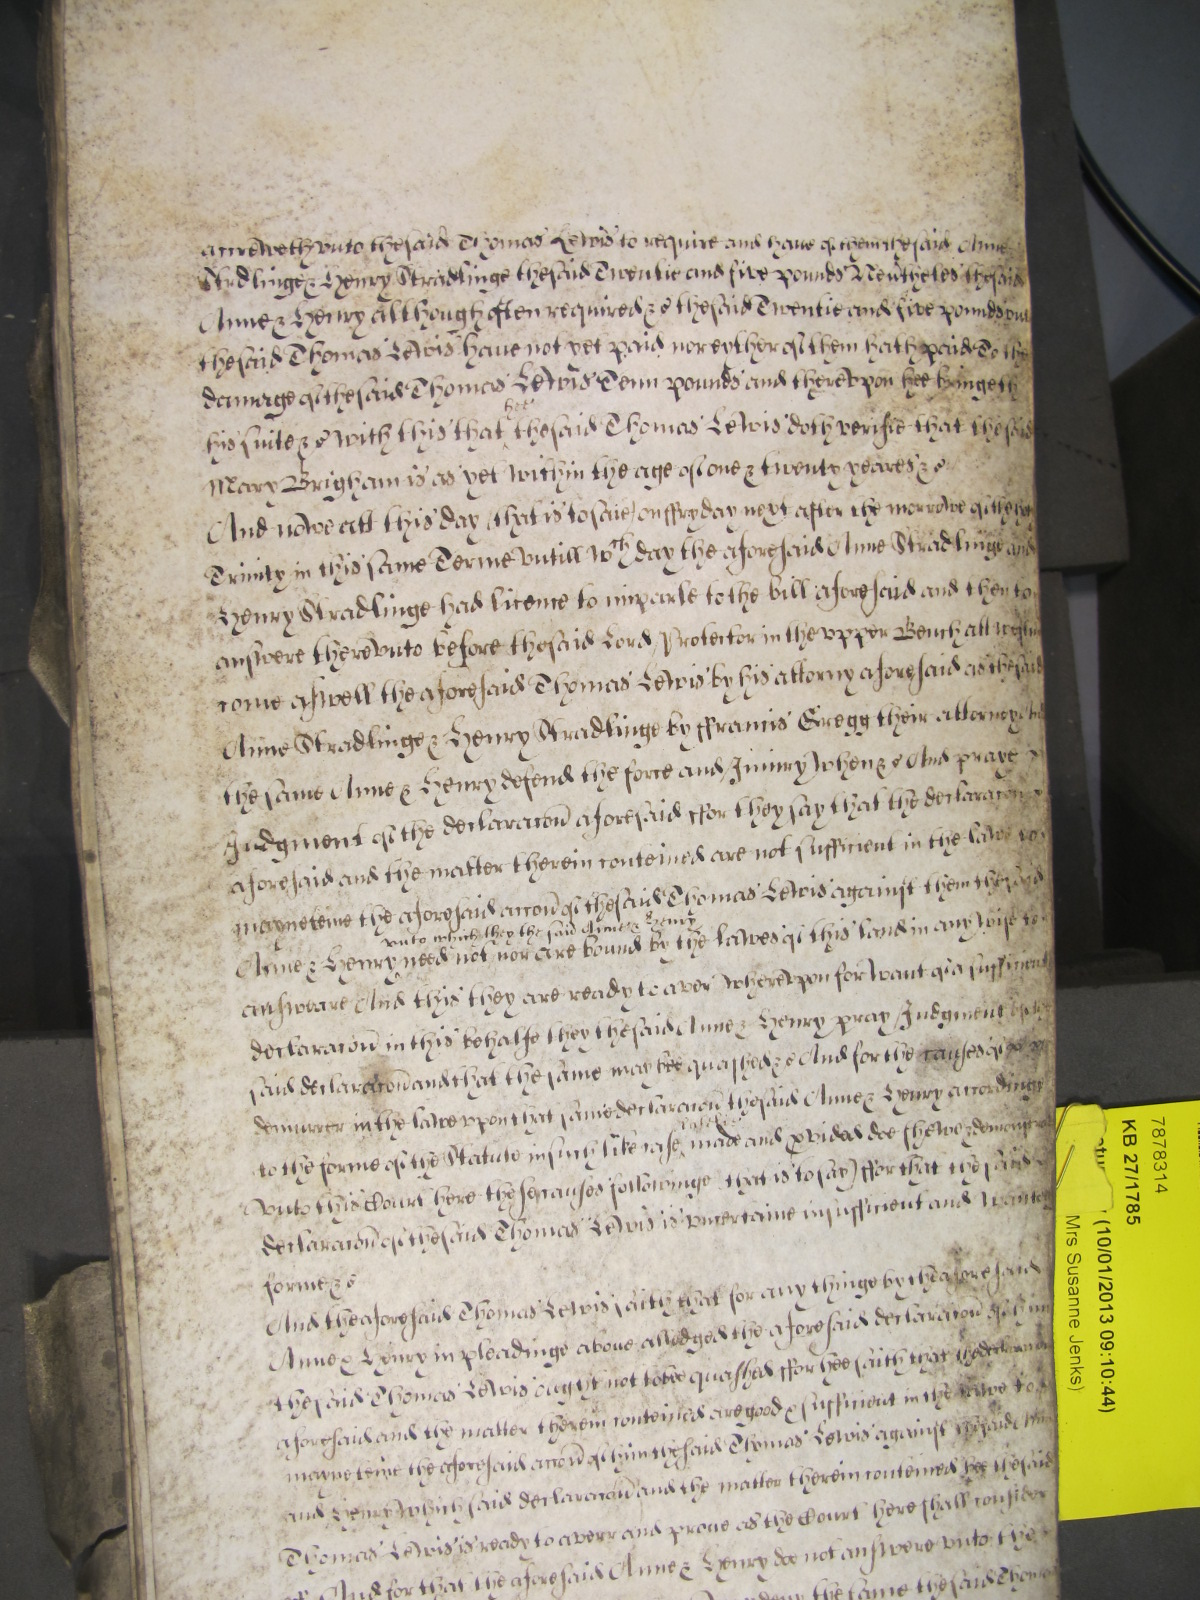 accreweth vnto the said Thomas Lewis to require and haue of them the said Anne
Stradlinge & Henry Stradlinge the said Twentie and five pounds Neutheles the said
Anne & Henry although often required &c the said Twentie and five pounds vnto
the said Thomas Lewis haue not yet paid nor eyther of them hath paid To the
damage of the said Thomas Lewis Tenn pounds and therevpon hee bringeth
his suite &c With this that hee the said Thomas Lewis doth verifie that the said
Mary Brigham is as yet within the age of one & twenty yeares &c
And nowe att this day (that is to saie) on ffryday next after the morrowe of the holy
Trinity in this same Terme vntill wch day the aforesaid Anne Stradlinge and
Henry Stradlinge had licence to imparle to the bill aforesaid and then to
answere therevnto before the said Lord Protector in the vpper Bench att
come aswell the aforesaid Thomas Lewis by his attorny aforesaid as the said
Anne Stradlinge & Henry Stradlinge by ffrancis Gregg their attorney And
the same Anne & Henry defend the force and Iniury when &c And praye
Iudgment of the declaracon aforesaid ffor they say that the declaracon
aforesaid and the matter therein conteined are not sufficient in the lawe to
mayneteine the aforesaid accon of the said Thomas Lewis against them the said
vnto which they the said Anne & Henry
Anne & Henry need not nor are bound by the lawes of this land in any wise to
answeare And this they are ready to aver wherevpon for want of a sufficient
declaracon in this behalfe they the said Anne & Henry pray Iudgment
said declaracon and that the same may bee quashed &c And for the causes of
demurrer in the lawe vpon that same declaracon the said Anne & Henry accordinge
to the forme of the Statute in such like case made and provided doe shewe & demonstrate
vnto this Court here these causes followinge (that is to say) ffor that the said
declaracon of the said Thomas Lewis is vncertaine insufficient and wanteth
forme &c
And the aforesaid Thomas Lewis saith that for any thinge by the aforesaid
Anne & Henry in pleadinge above alledged the aforesaid declaracon of him
the said Thomas Lewis ought not to bee quashed ffor hee saith that the declaracon
aforesaid and the matter therein conteined are good & sufficient in the lawe to
mayneteine the aforesaid accon of him the said Thomas Lewis against the said Anne
and Henry which said declaracon and the matter therein conteined hee the said
Thomas Lewis is ready to averr and prove as the Court here shall consider
&c And for that the aforesaid Anne & Henry doe not answere vnto the
deny the same the said Thomas
7878314
KB 27/1785
(10/01/2013 09:10:44)
Mrs Susanne Jenks)